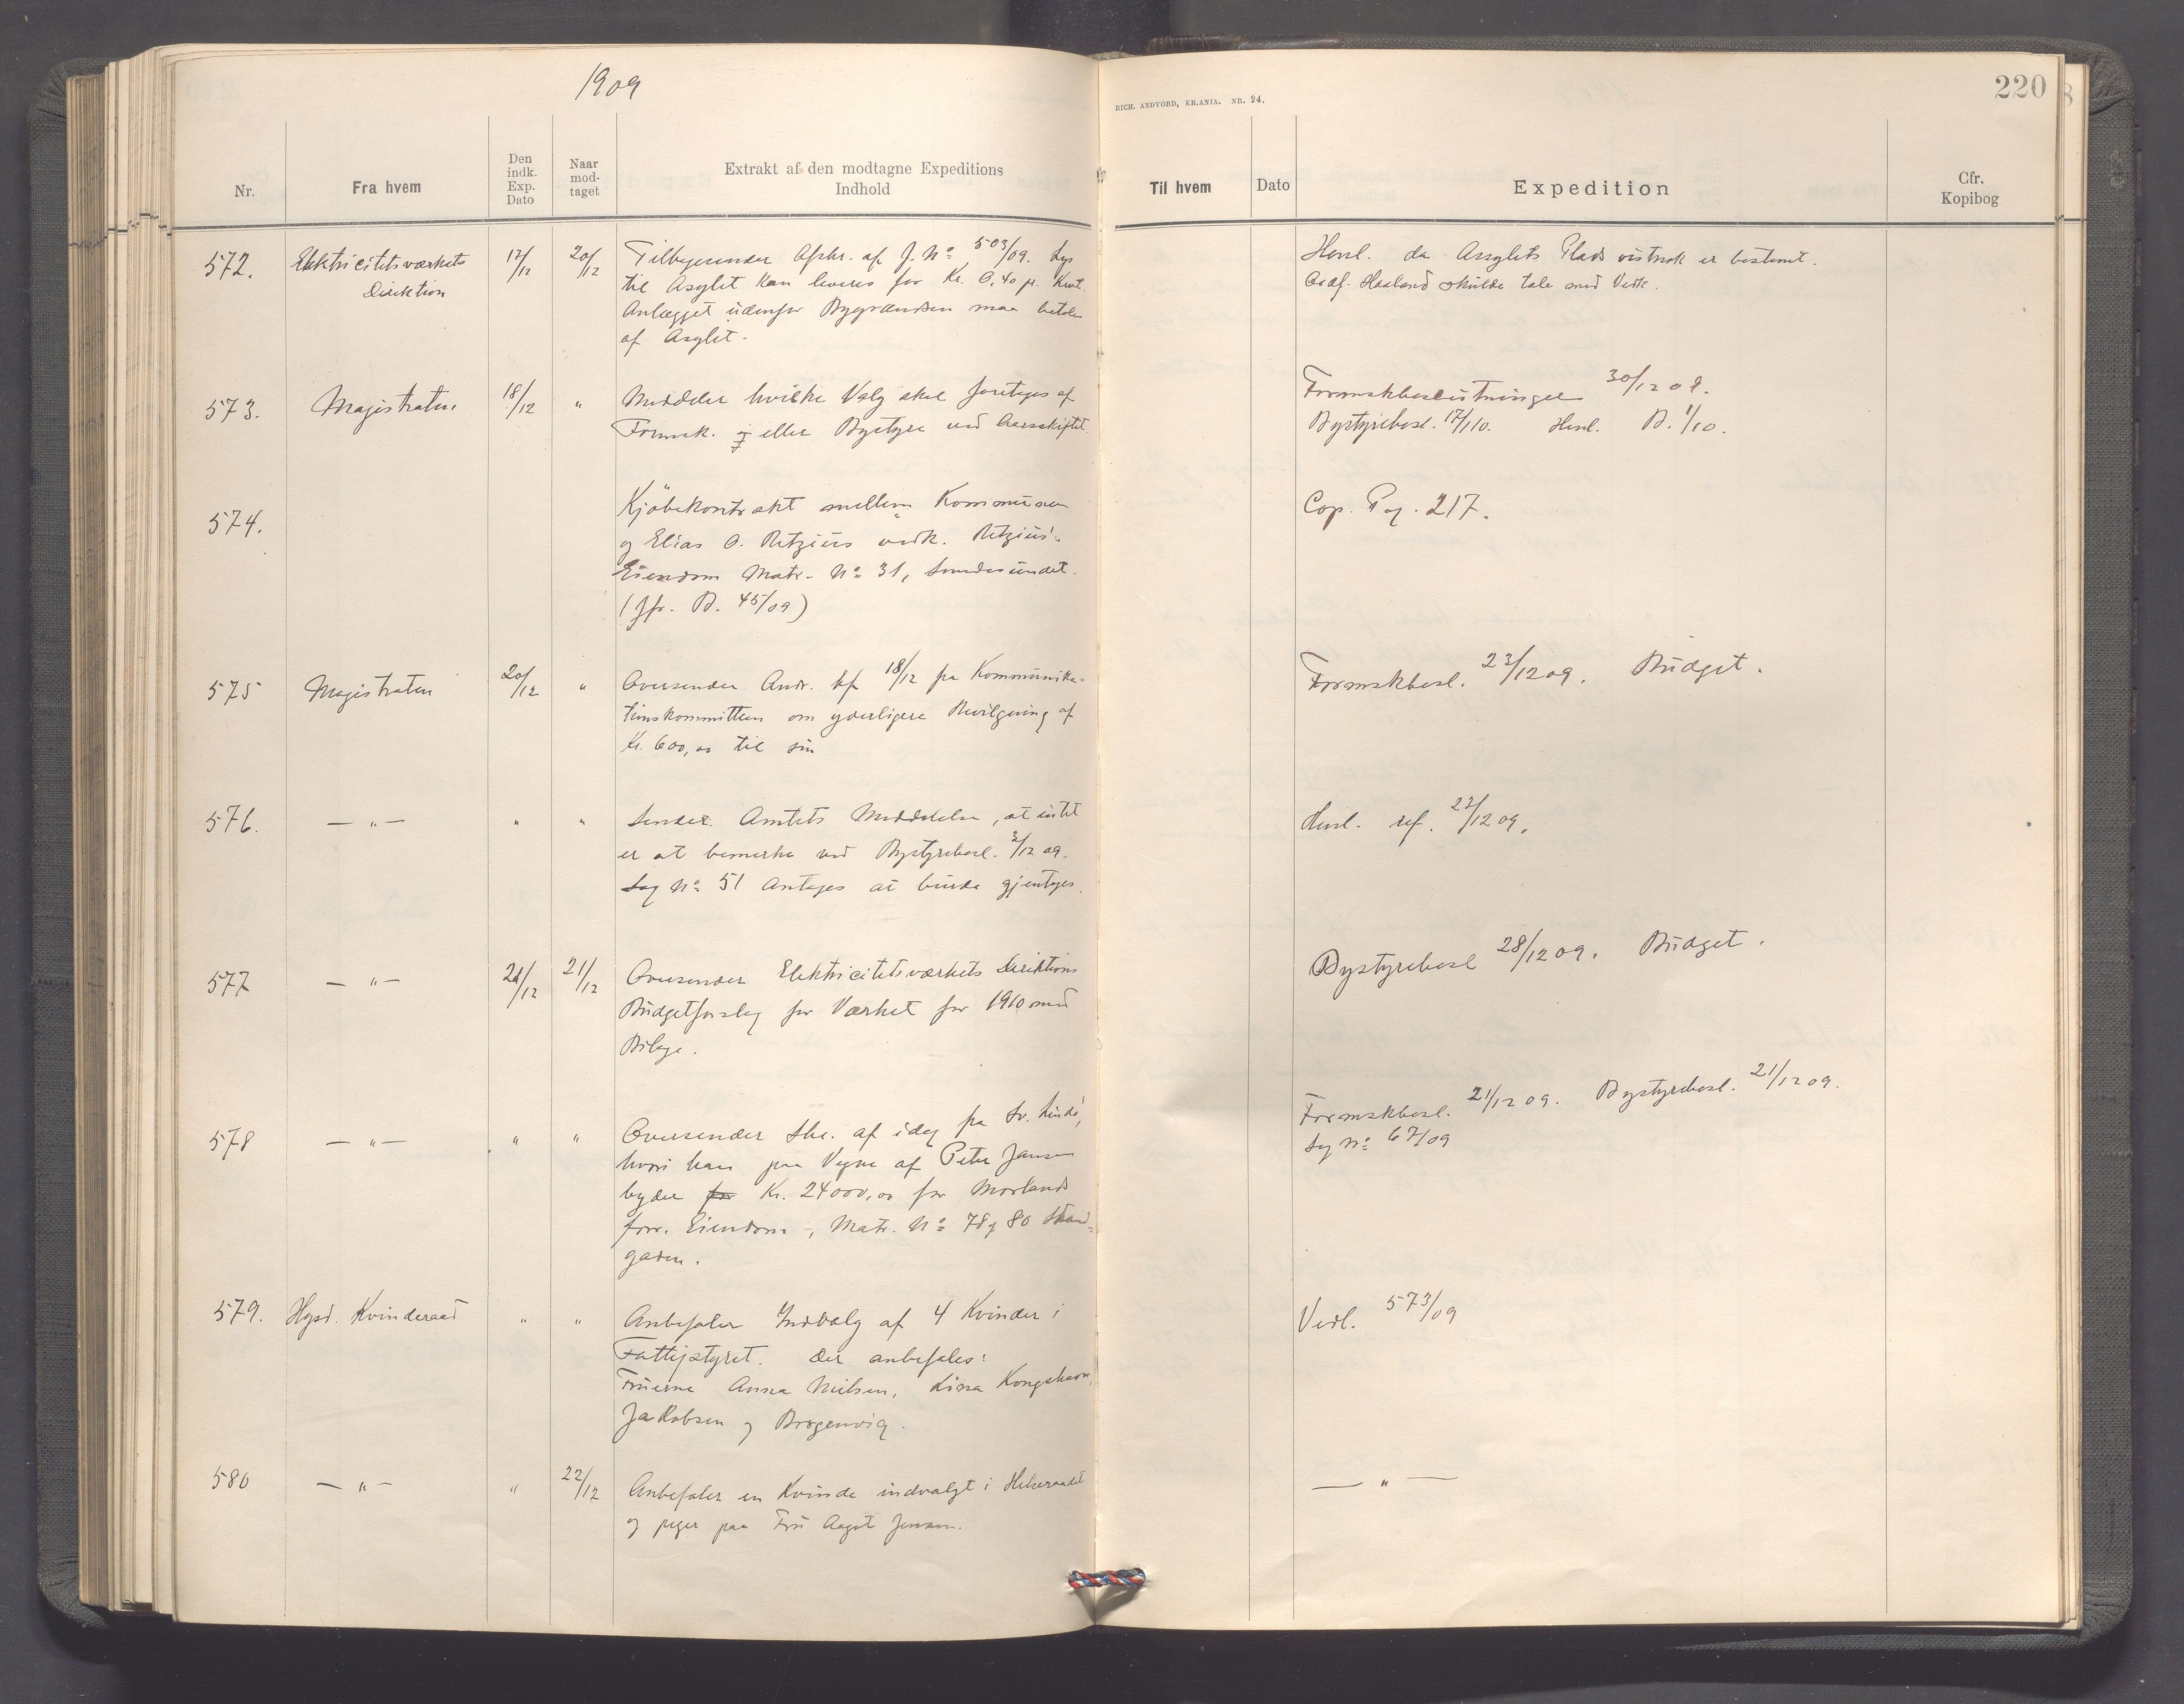 1909
Nr.
Fra hvem
Den indk. Exp. Dato
Naar mod-taget
Extrakt af den modtagne Expeditions
Indhold
572.
Elektricitetsværkets
Direktion
17/12
20/12
Tilbagesender Afskr. af J. No 503/09. Lys
til Asylet kan leveres for Kr. 0,40 pr. Kwt.
Anlægget udenfor Bygrændsen maa betales
af Asylet.
573.
Magistraten
18/12
"
Meddeler hvilke Valg skal foretages af
Formsk. og eller Bystyre ved Aarsskiftet.
574.
Kjöbekontrakt mellem Kommunen
og Elias O. Retzius vedk. Retzius's
Eiendom Matr. No 31, Smedesundet.
(Jfr. B. 45/09)
575
Magistraten
20/12
"
Oversender Andr. af 18/12 fra Kommunika-
tionskommitteen om yderligere Bevilgning af
Kr. 600,00 til sin
576.
— " —
"
"
Sender Amtets Meddelelse, at intet
er at bemerke ved Bystyrebesl. 3/12 09.
Sag No 51 antages at burde gjentages.
577
— " —
21/12
21/12
Oversender Elektricitetsværkets Direktions
Budgetforslag for Værket for 1910 med
Bilage.
578
— " —
"
"
Oversender Skr. af idag fra Sv. Lindö,
hvori han paa Vegne af Peter Jansen
byder for Kr. 24000,00 for Morlands
forr. Eiendom, Matr. No 78 og 80 Strand-
gaden.
579.
Hgsd. Kvinderaad
"
"
Anbefaler Indvalg af 4 Kvinder i
Fattigstyret. Der anbefales:
Fruerne Anna Nielsen, Lina Kongshavn,
Jakobsen og Brogenvig.
580
— " —
"
22/12
Anbefaler en Kvinde indvalgt i Helseraadet
og peger paa Fru Aagot Jensen.
RICH. ANDVORD, KR.ANIA. NR. 24.
220
Til hvem
Dato
Expedition
Cfr.
Kopibog
Henl. da Asylets Plads vistnok er bestemt.
Ordf. Haaland skulde tale med Vedk.
Formskbeslutninger 30/12 09.
Bystyrebesl. 17/1 10. Henl. B. 1/10.
Cop. Pag. 217.
Formskbesl. 23/12 09. Budget.
Henl. ref. 23/12 09.
Bystyrebesl 28/12 09. Budget.
Formskbesl. 21/12 09. Bystyrebesl. 21/12 09.
Sag No 67/09
Vedl. 573/09
— " —